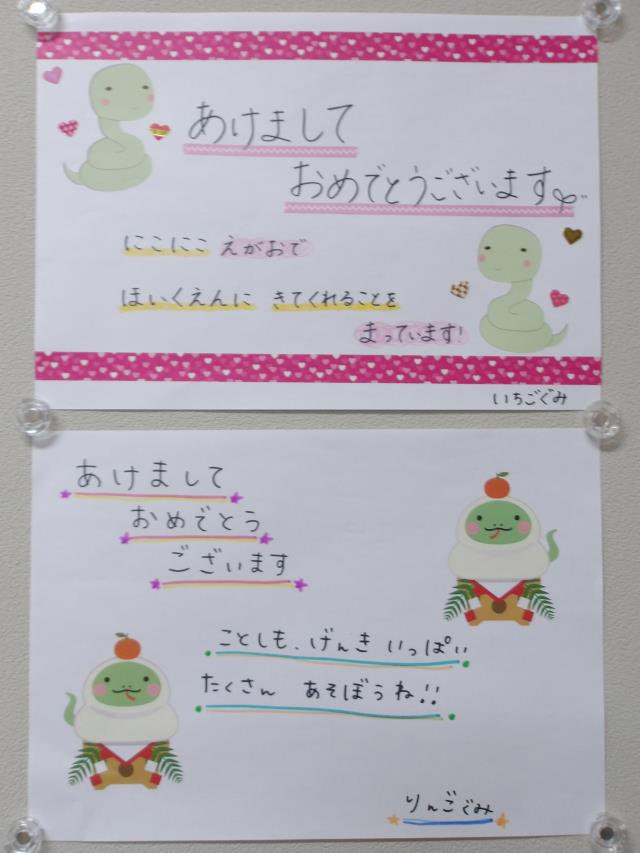 あけまして
おめでとうございます
にこにこ えがおで
ほいくえんに きてくれることを
まっています!
いちごぐみ
あけまして
おめでとう
ございます
ことしも、げんき いっぱい
たくさん あそぼうね!!
りんごぐみ